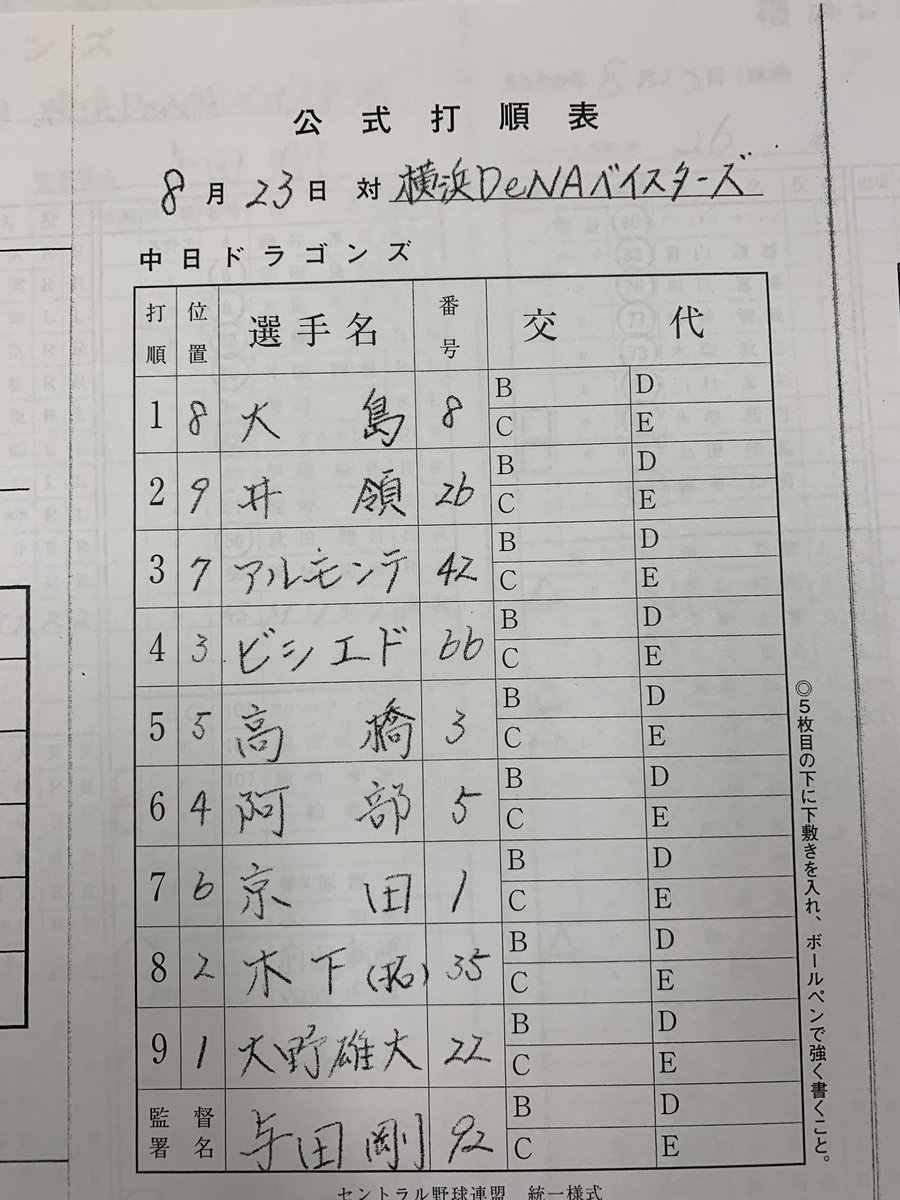 公式打順表
8月23日 対 横浜DeNAベイスターズ
中日ドラゴンズ
打順 位置 選手名 番号 交代
1 8 大島 8 B D C E
2 9 井領 26 B D C E
3 7 アルモンテ 42 B D C E
4 3 ビシエド 66 B D C E
5 5 高橋 3 B D C E
6 4 阿部 5 B D C E
7 6 京田 1 B D C E
8 2 木下(拓) 35 B D C E
9 1 大野雄大 22 B D C E
監督署名 与田剛 92 B D C E
◎5枚目の下に下敷きを入れ、ボールペンで強く書くこと。
セントラル野球連盟 統一様式